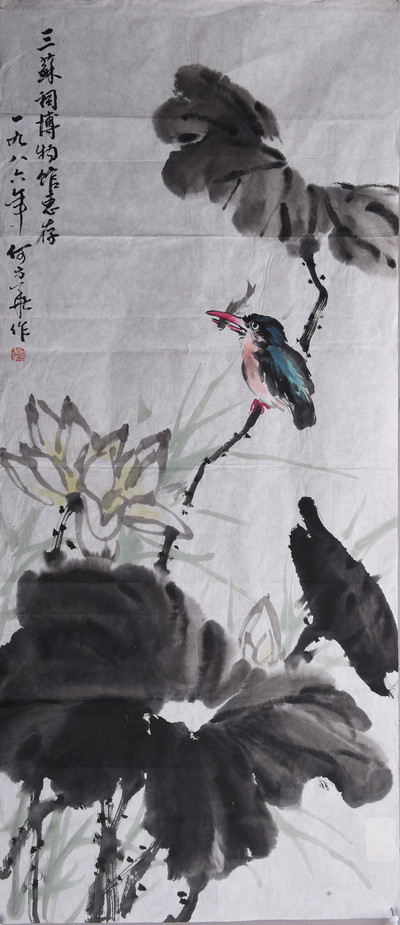 三蘇祠博物馆惠存
一九八六年 何方华作